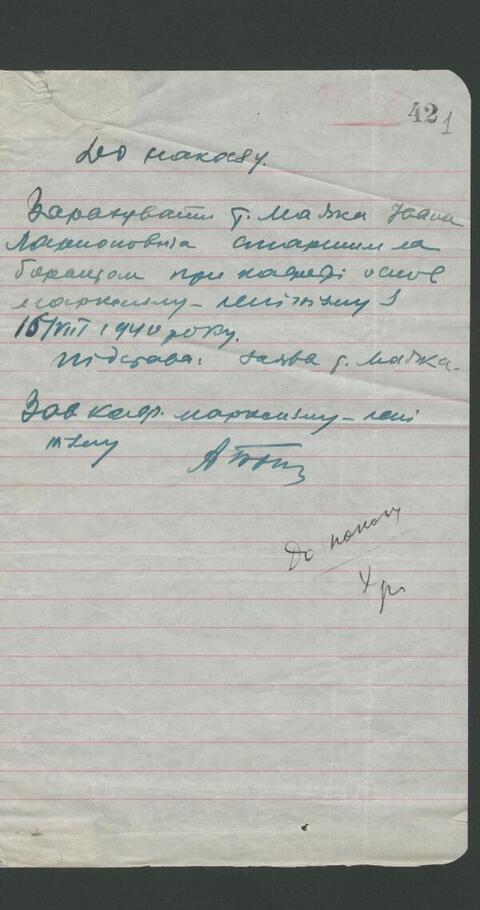 42 1
До наказу.
Зарахувати т. Маджа Івана
Ларионовича старшим ла
борантом при кафедрі основ
марксизму-ленінізму з
16/VIII 1940 року.
Підстава: заява т. Маджа.
Зав кафр. марксизму-лені
нізму
До наказу